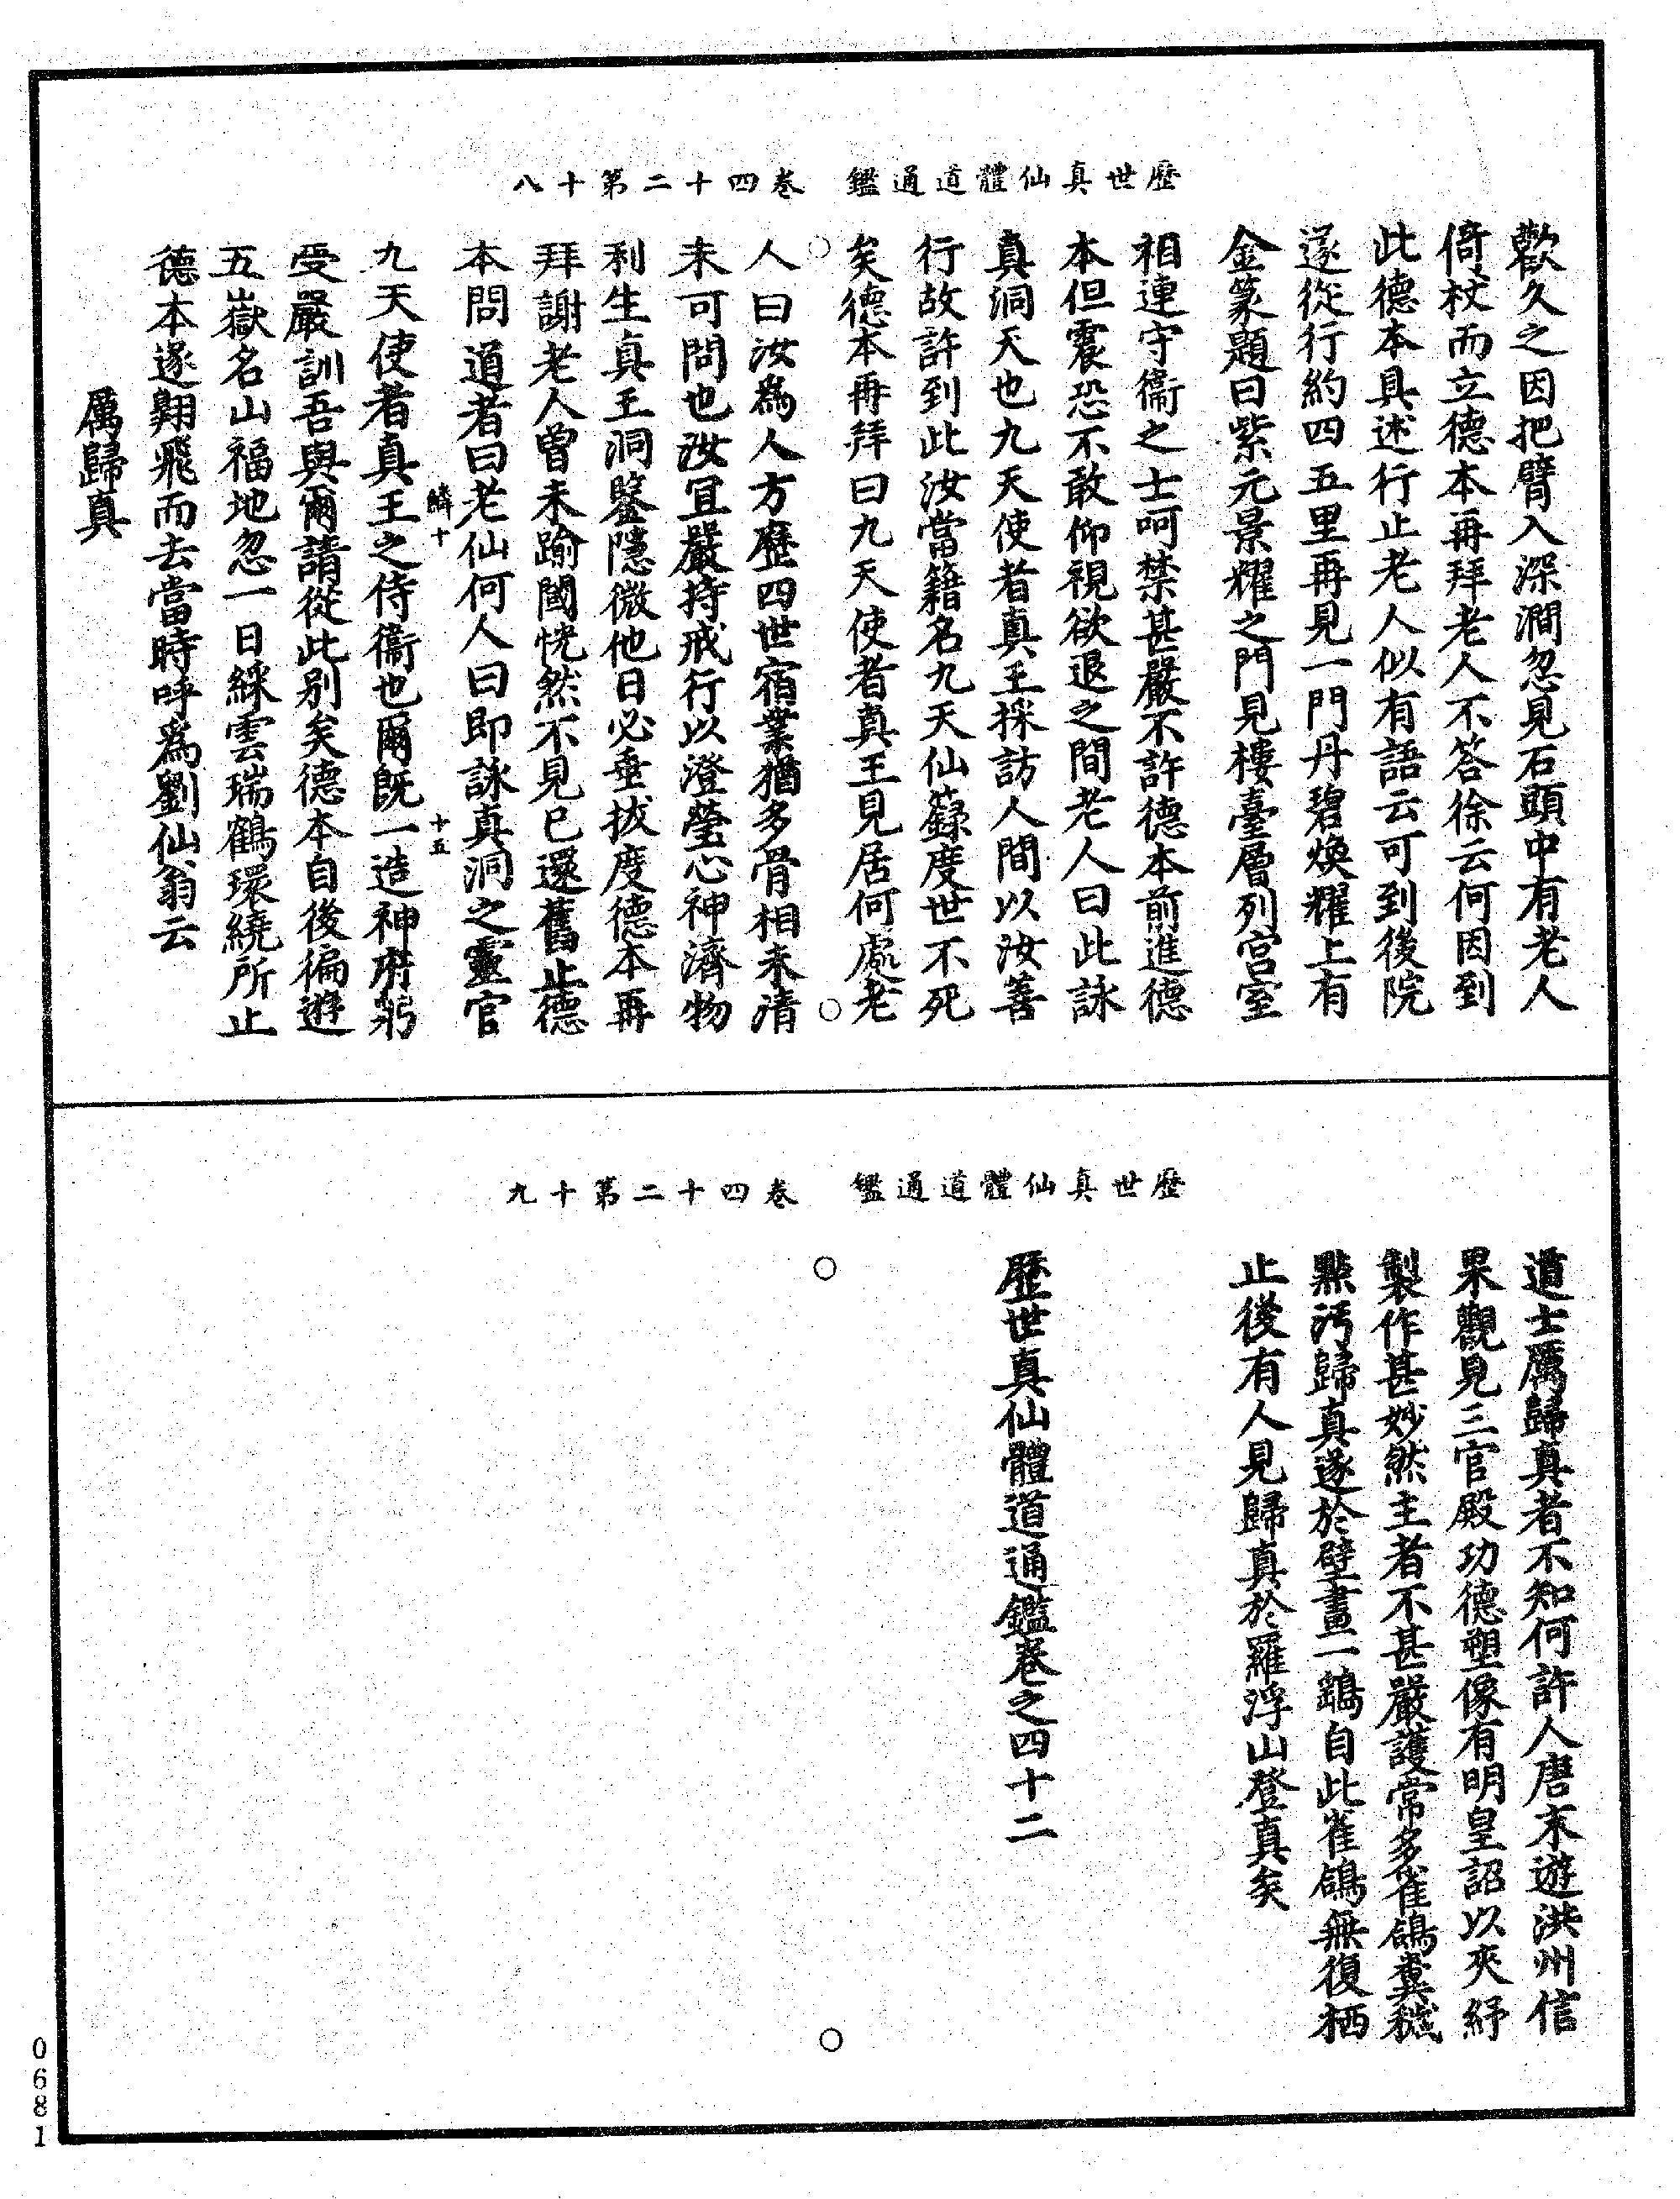 歷世真仙體道通鑑　卷四十二第十八
歡久之因把臂入深澗忽見石頭中有老人
倚杖而立德本再拜老人不答徐云何因到
此德本具述行止老人似有語云可到後院
遂從行約四五里再見一門丹碧煥耀上有
金篆題曰紫元景耀之門見樓臺層列宫室
相連守衞之士呵禁甚嚴不許德本前進德
本但震恐不敢仰視欲退之間老人曰此詠
真洞天也九天使者真王採訪人間以汝善
行故許到此汝當籍名九天仙籙度世不死
矣德本再拜曰九天使者真王見居何處老
人曰汝為人方歷四世宿業猶多骨相未清
未可問也汝冝嚴持戒行以澄瑩心神濟物
利生真王洞鑒隱微他日必垂拔度德本再
拜謝老人曾未踰閾恍然不見已還舊止德
本問道者曰老仙何人曰即詠真洞之靈官
鱗十　十五
九天使者真王之侍衞也爾既一造神府躬
受嚴訓吾與爾請從此别矣德本自後徧遊
五嶽名山福地忽一日綵雲瑞鶴環繞所止
德本遂翺飛而去當時呼爲劉仙翁云
厲歸真
歷世真仙體道通鑑　卷四十二第十九
道士厲歸真者不知何許人唐末遊洪州信
果觀見三官殿功德塑像有明皇詔以夾紵
製作甚妙然主者不甚嚴護常多雀鴿糞穢
點汚歸真遂於壁畫一鷂自此雀鴿無復栖
止後有人見歸真於羅浮山登真矣
歷世真仙體道通鑑卷之四十二
0681